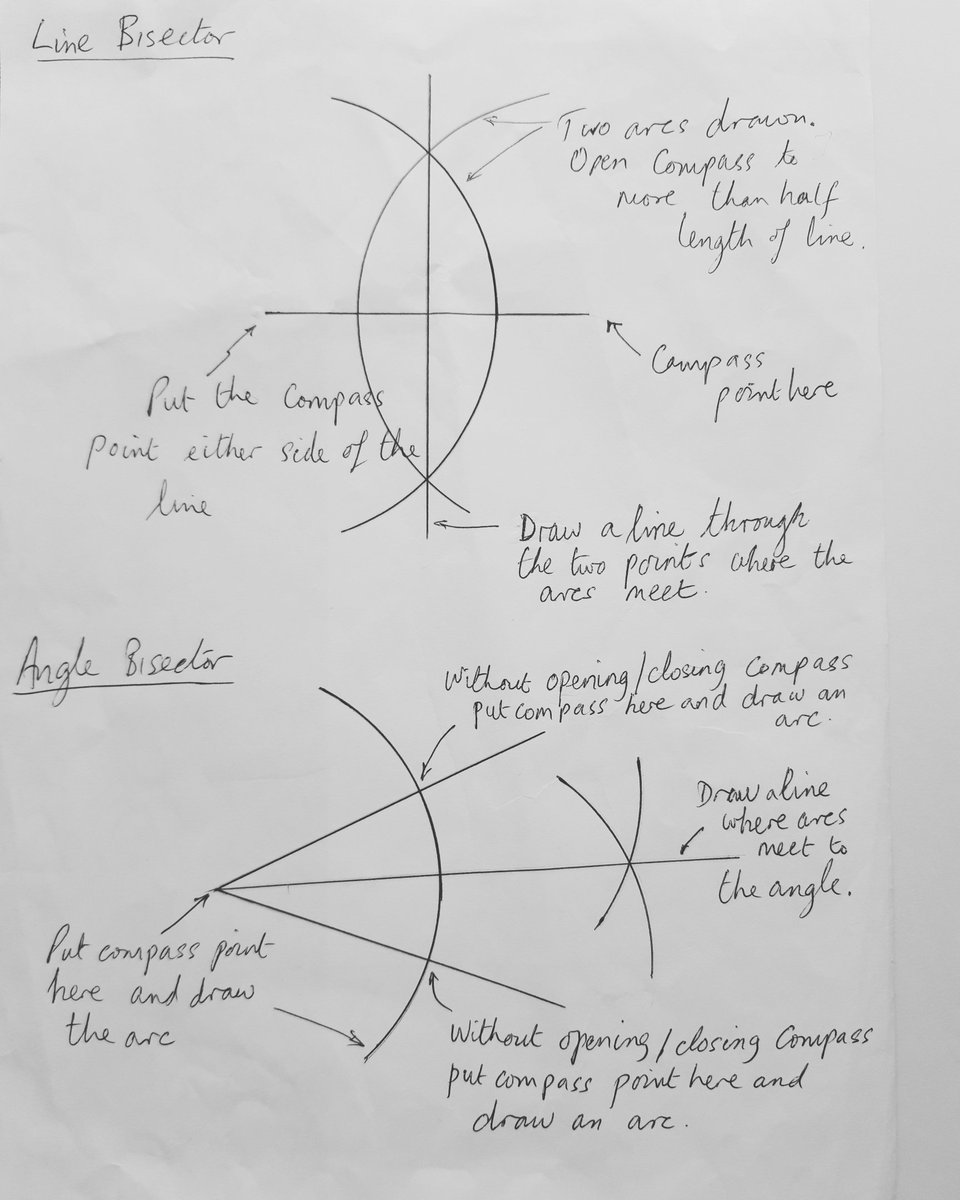 Line Bisector
Two arcs drawn.
Open Compass to
more than half
length of line.
Compass
point here
Put the Compass
point either side of the
line
Draw a line through
the two points where the
arcs meet.
Angle Bisector
Without opening/closing Compass
put compass here and draw an
arc.
Draw a line
where arcs
meet to
the angle.
Put compass point
here and draw
the arc
Without opening/closing Compass
put compass point here and
draw an arc.